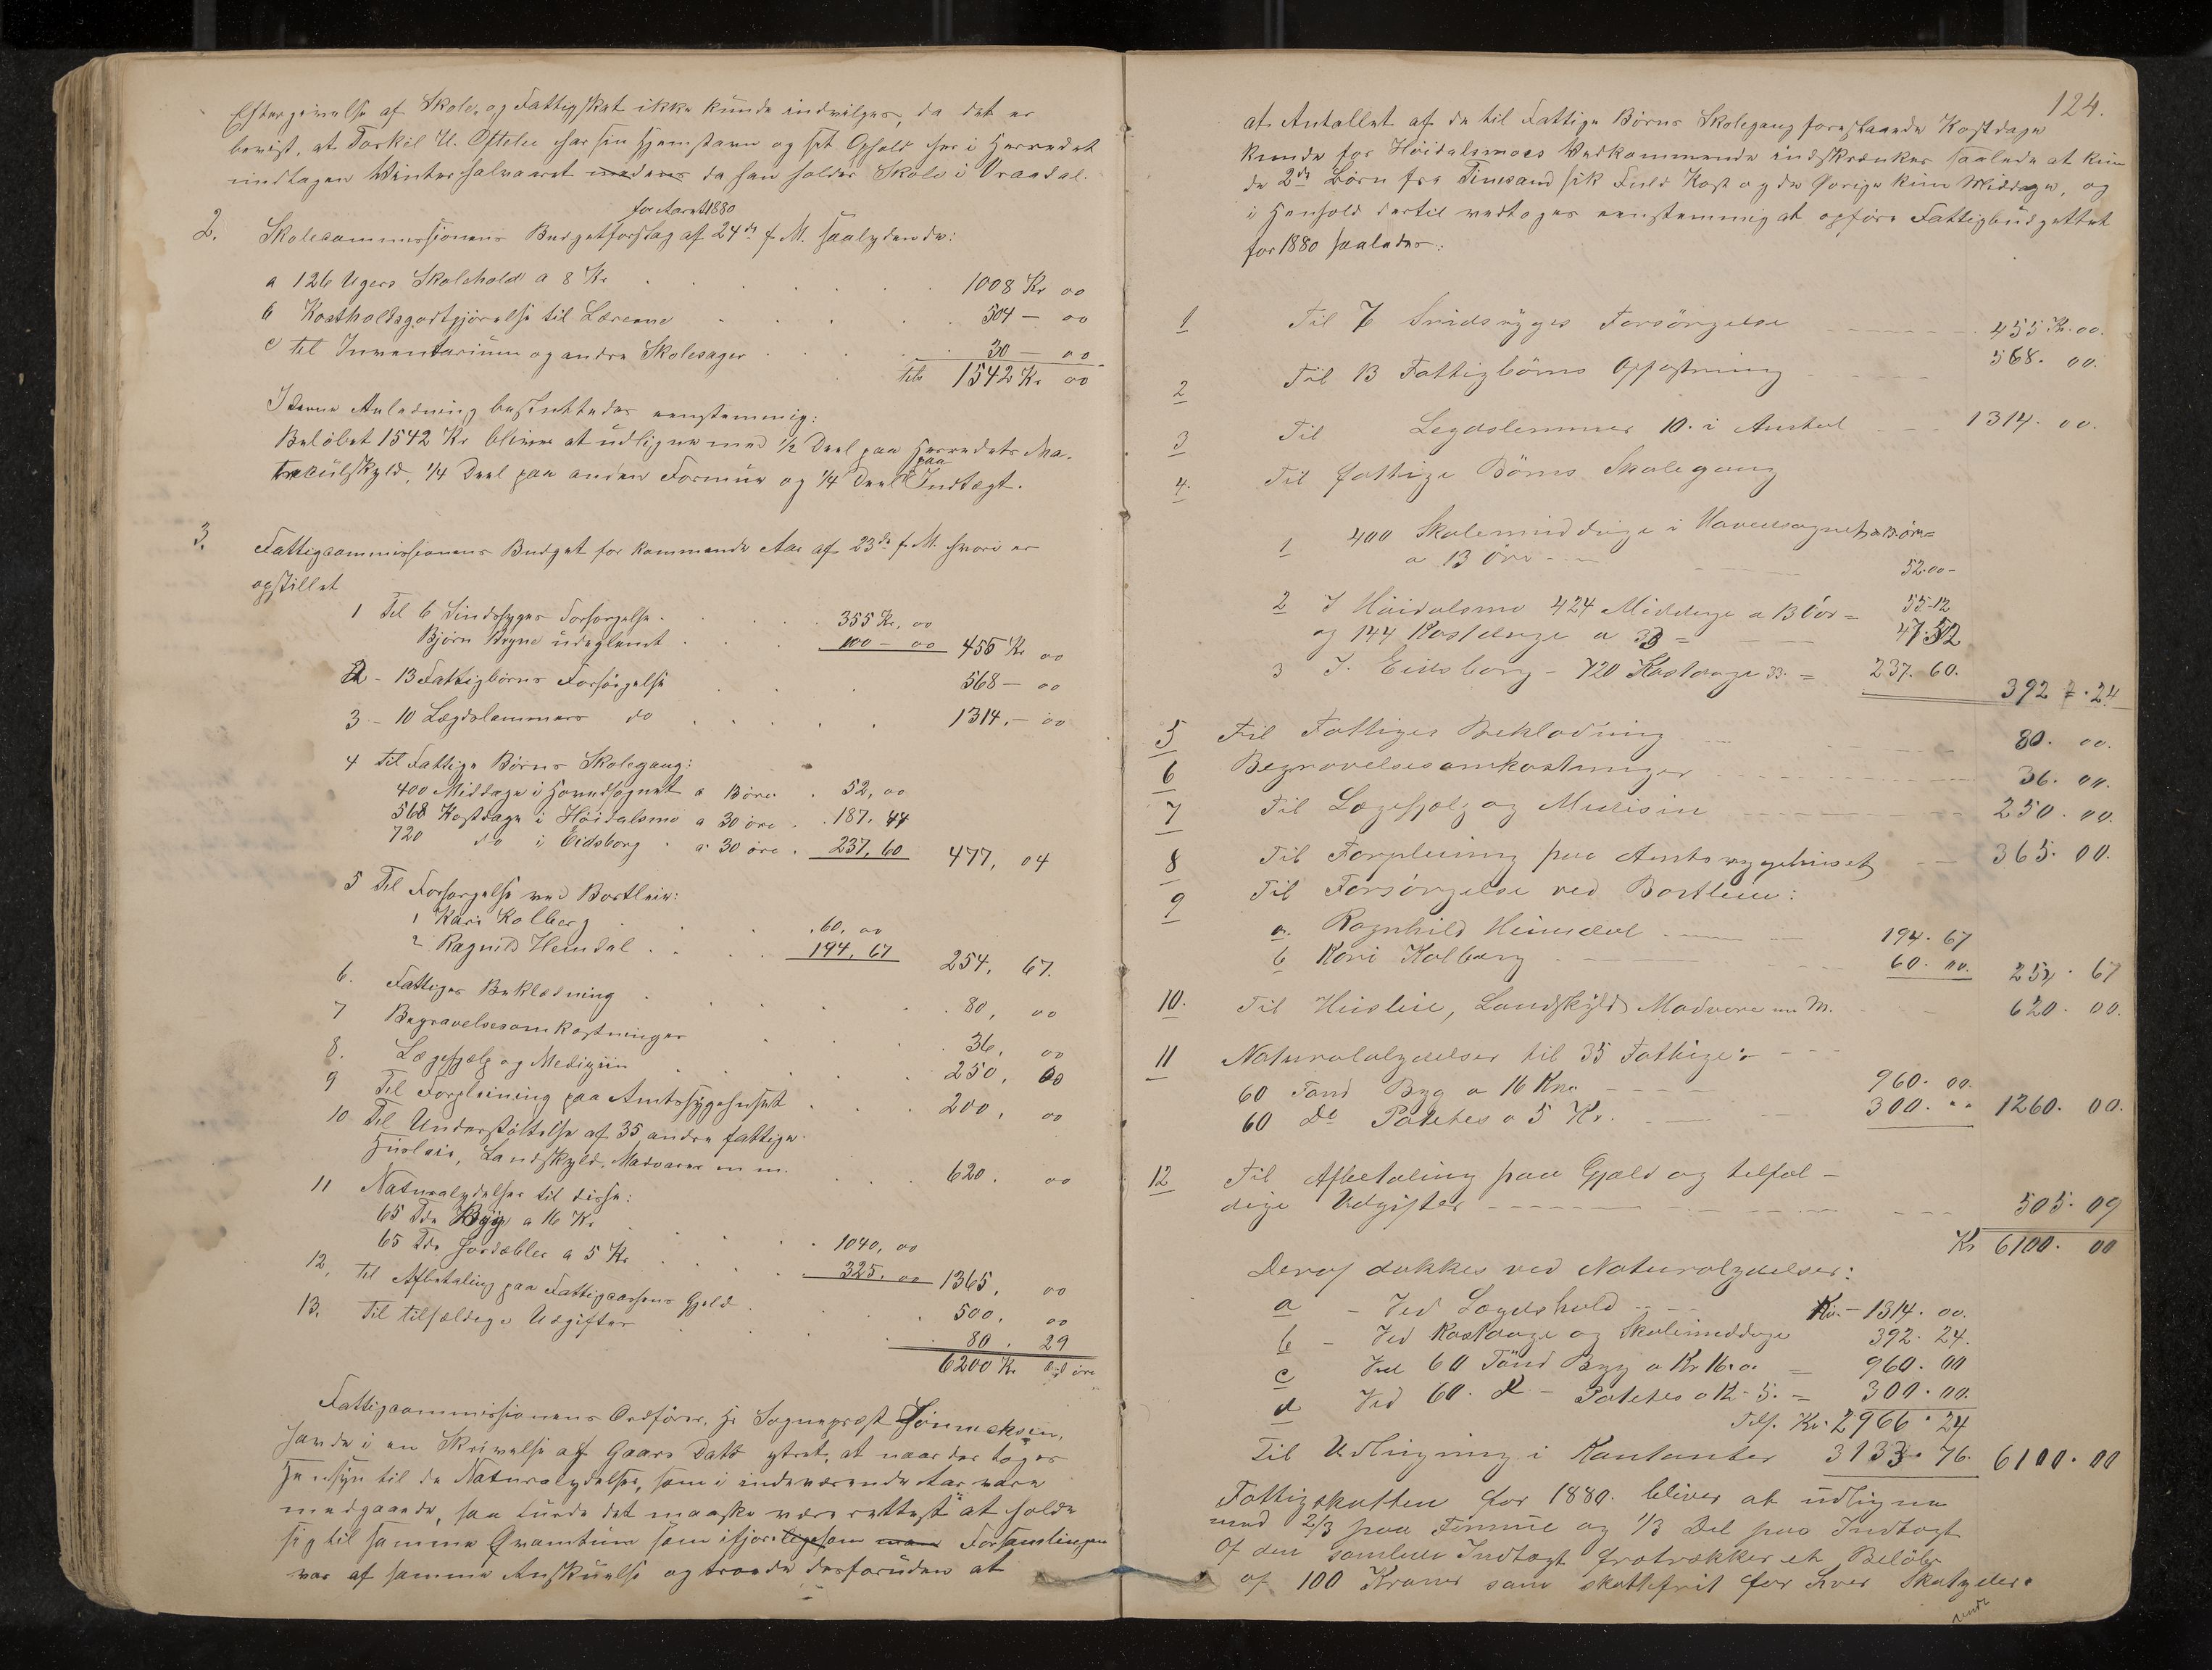 Eftergivelse af Skole- og Fattigskat ikke kunde indvilges, da det er
bevist, at Torkil U. Oftelie har sin Hjemstavn og sit Ophold her i Herredet
undtagen Winterhalvaaret da han holder Skole i Vraadal.
for Aaret 1880
2. Skolecommissionens Budgetforslag af 24de f. M. saalydende:
a 126 Ugers Skolehold a 8 Kr 1008 Kr 00
b Kostholdsgodtgjørelse til Lærerne 504 — 00
c til Inventarium og andre Skolesager 30 — 00
tils 1542 Kr 00
I denne Anledning besluttedes eenstemmig:
Beløbet 1542 Kr bliver at udligne med 1/2 Deel paa Herredets Ma-
trikulskyld, 1/4 Deel paa anden Formue og 1/4 Deel paa Indtægt.
3. Fattigcommissionens Budget for kommende Aar af 23de f. M. hvori er
opstillet
1 Til 6 Sindssyges Forsørgelse 355 Kr, 00
Bjørn Bryne udeglemt 100 — 00 455 Kr 00
2 - 13 Fattigbørns Forsørgelse 568 — 00
3 - 10 Lægdslemmers do 1314, — 00
4 til Fattige Børns Skolegang:
400 Middage i Hovedsognet a 13 øre 52, 00
568 Kostdage i Höidalsmo a 30 øre 187, 44
720 do i Eidsborg a 30 øre 237, 60 477, 04
5 Til Forsørgelse ved Bortleie:
1 Kari Kolberg 60, 00
2 Ragnild Heimdal 194, 67 254, 67.
6. Fattiges Beklædning 80, 00
7 Begravelsesomkostninger 36, 00
8. Lægehjælp og Medizin 250, 00
9 Til Forpleining paa Amtssygehuset 200, 00
10 Til Understøttelse af 35 andre fattige
Huusleie, Landskyld, Madvarer m m. 620, 00
11 Naturalydelser til disse:
65 Tdr Byg a 16 Kr 1040, 00
65 Tdr Jordæbler a 5 Kr 325, 00 1365, 00
12, til Afbetaling paa Fattigcassens Gjeld 500, 00
13. Til tilfældige Udgifter 80, 29
6200 Kr 00 øre
Fattigcommissionens Ordfører, Hr Sognepræst
havde i en Skrivelse af Gaars Dato ytret, at naar der toges
Hensyn til de Naturalydelser, som i indeværende Aar vare
medgaaede, saa turde det maaske være rettest at holde
sig til samme Qvantum som ifjor Forsamlingen
var af samme Anskuelse og troede desforuden at
124.
at Antallet af de til Fattige Børns Skolegang foreslaaede Kostdage
kunde for Höidalsmoes Vedkommende indskrænkes saaledes at kun
de 2de Børn fra Timesand fik Fuld Kost og de Øvrige kun Middage, og
i Henhold dertil vedtoges eenstemmig at opføre Fattigbudgettet
for 1880 saaledes:
1 Til 7 Sindsÿges Forsörgelse 455 Kr. 00.
2 Til 13 Fattigbörns Opfostring 568. 00.
3 Til Legdslemmer 10. i Antal 1314. 00.
4. Til fattige Börns Skolegang
1 400 Skolemiddage i Hovedsognet
a 13 Öre 52.00-
2 I Höidalsmo 424 Middage a 13 Öre = 55.12
og 144 Kostdage a 33 = 47.52
3 I Eidsborg - 720 Kostdage 33. = 237. 60. 392. 24
5 Til Fattiges Beklædning 80. 00.
6 Begravelsesomkostninger 36. 00.
7 Til Lægehjælp og Medisin 250. 00.
8 Til Forpleining paa Amtssygehuset 365. 00.
9 Til Forsörgelse ved Bortleie:
a. Ragnhild Heimdal 194. 67
b Kari Kolberg 60. 00. 254. 67
10. Til Husleie, Landskÿld Madvare m. M. 620. 00.
11 Naturalalydelser til 35 Fattige:
60 Tönd Byg a 16 Kr. 960. 00.
60 Do Potetes a 5 Kr. 300. " 1260. 00.
12 Til Afbetaling paa Gjæld og tilfæl-
dige Udgifter 505. 09
Kr 6100. 00
Deraf dækkes ved Naturalydelser:
a - Ved Lægdshold Kr. - 1314. 00.
b - Ved Kostdage og Skolemiddage 392. 24.
c Ved 60 Tönd Byg a Kr 16. = 960. 00
d Ved 60. Do - Potetes a K - 5. = 300. 00.
Tils. Kr. 2966. 24
Til Udligning i Kontanter 3133. 76. 6100. 00
Fattigskatten for 1880. bliver at udligne
med 2/3 paa Formue og 1/3 Del paa Indtægt
Af den samlede Indtægt fratrækkes et Belöb
af 100 Kroner som skattefrit for hver Skatyder.